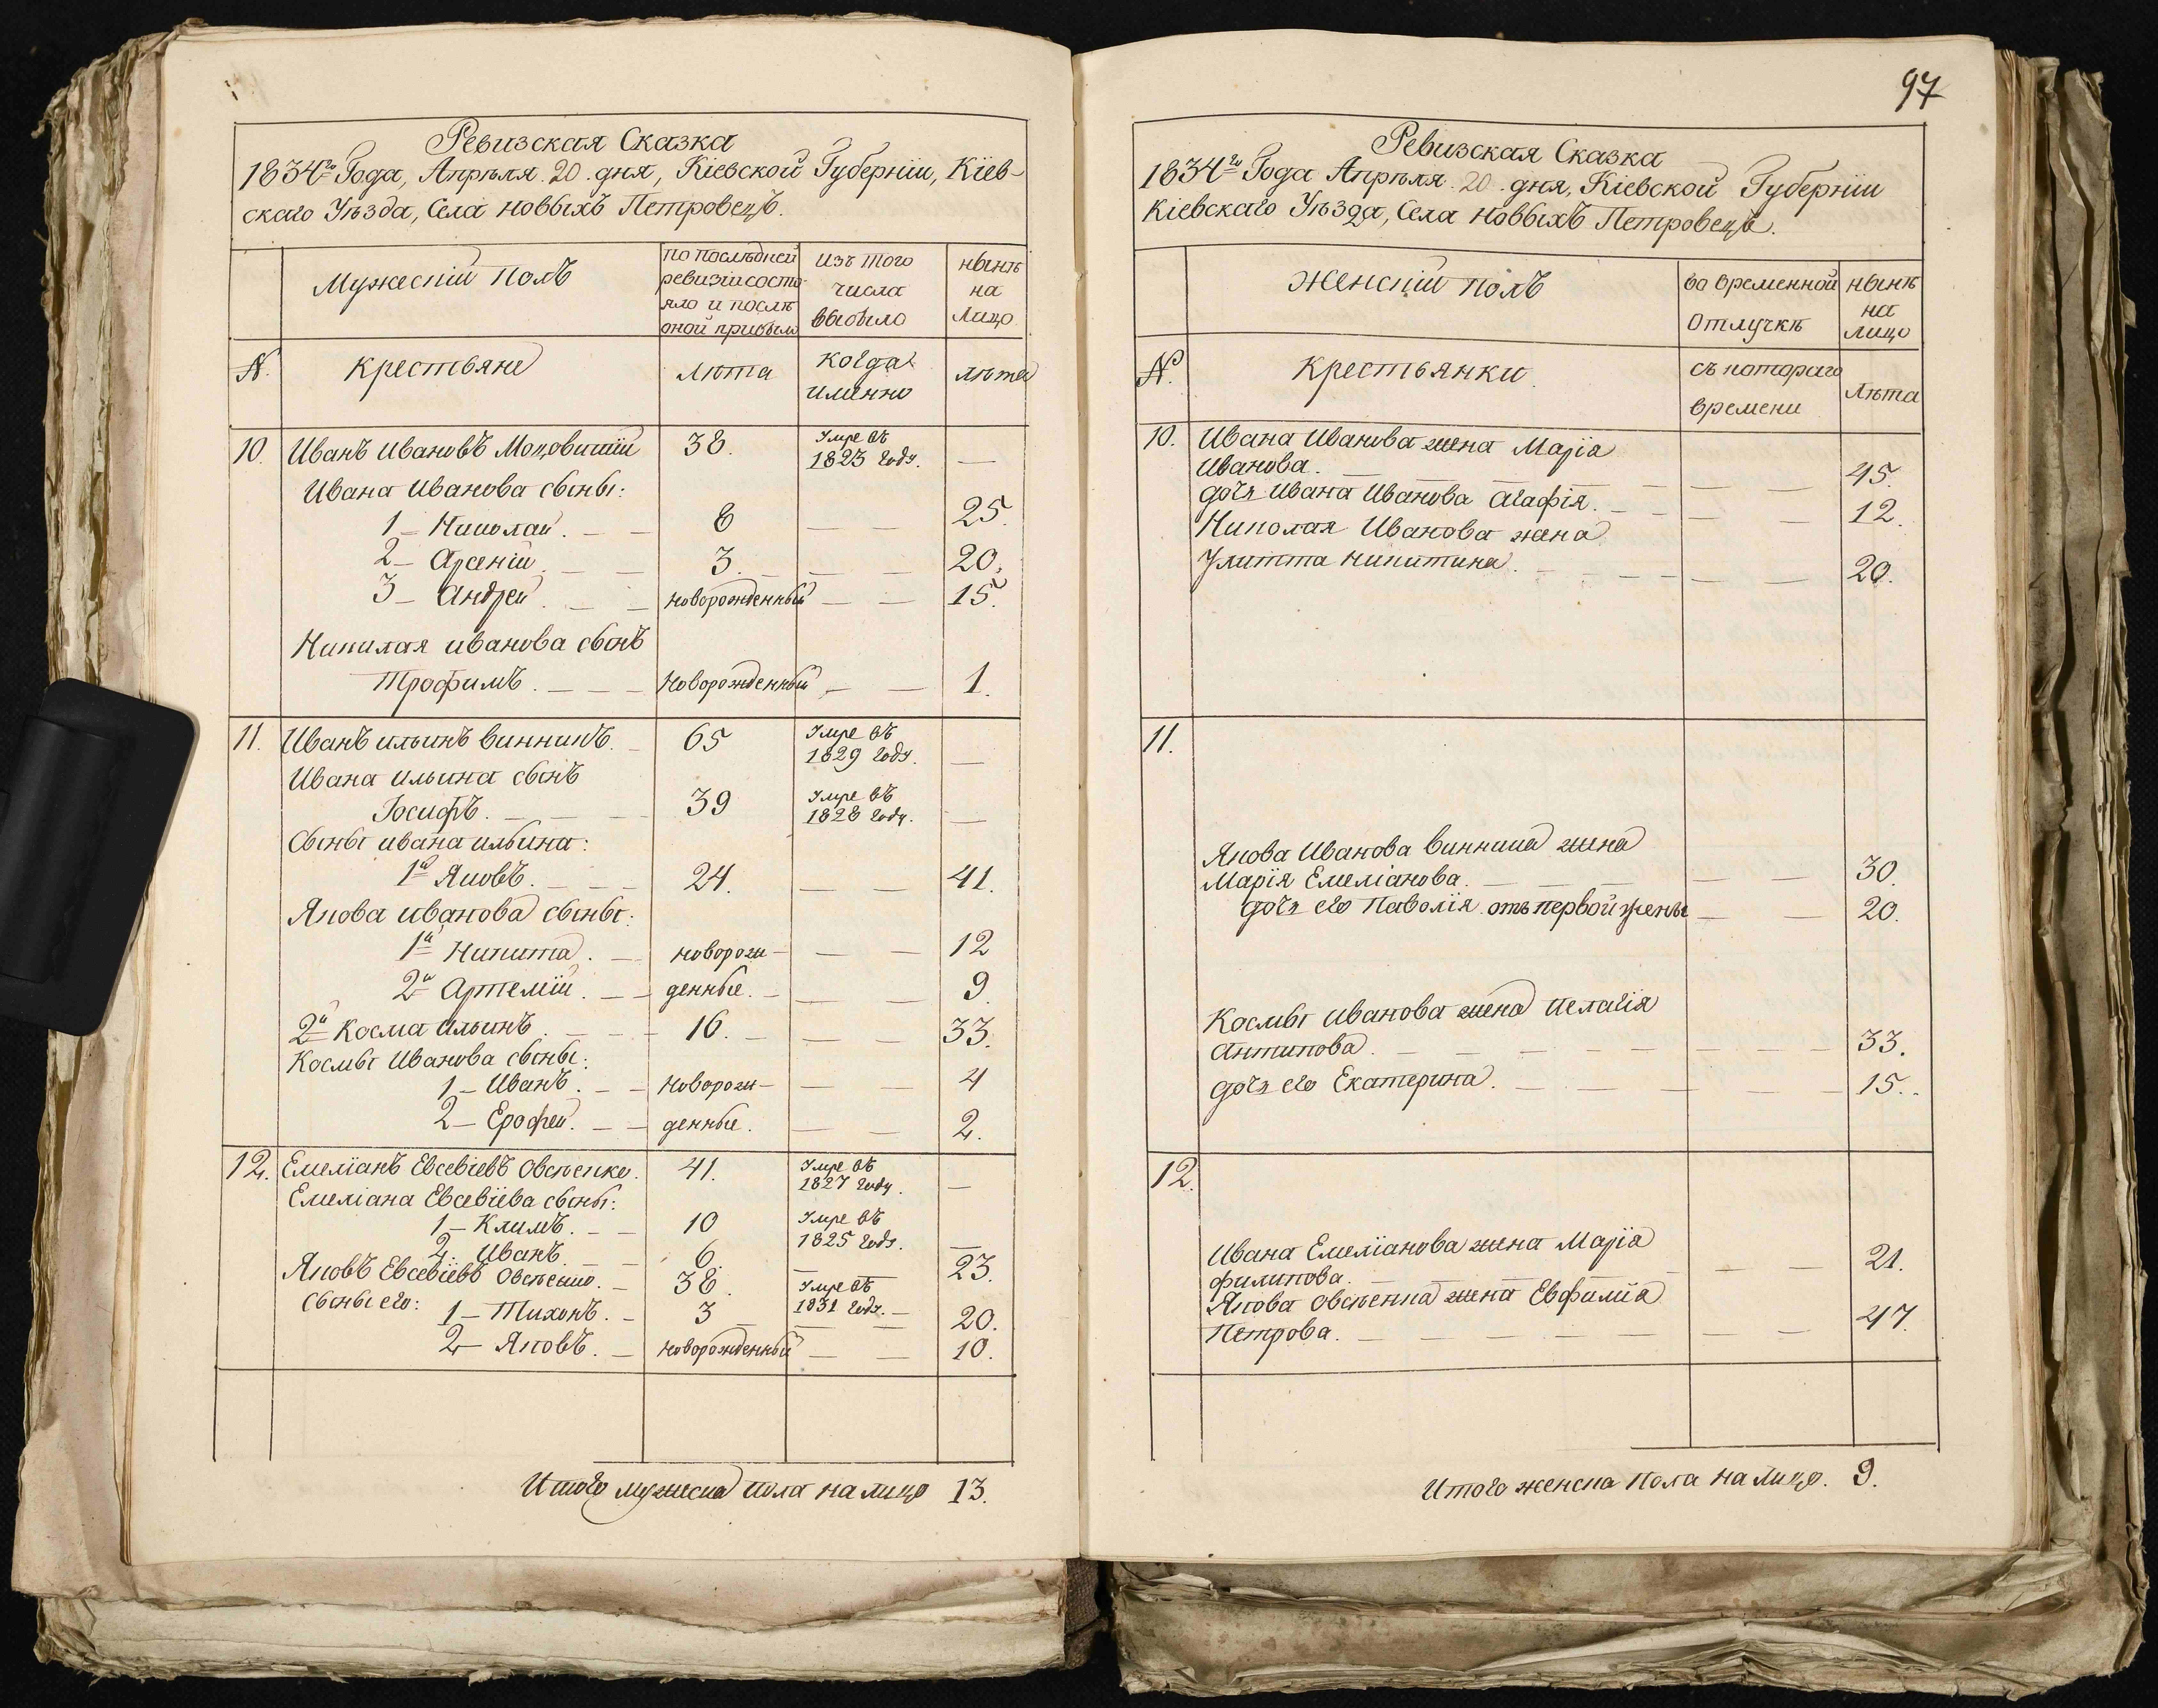 Ревизская Сказка
1834го Года, Апрѣля 20 дня, Кіевской Губерніи, Кіев-
скаго Уѣзда, Села Новыхъ Петровецъ.
Мужескій полъ
по послѣдней ревизіи состояло и послѣ оной прибыло
изъ того числа выбыло
нынѣ на лицо
№. Крестьяне лѣта когда именно лѣта
10. Иванъ Ивановъ 38. Умре въ 1823 году. —
Ивана Иванова сыны:
1 – Николай. — — 8 — — 25.
2 – Арсеній — — 3. — — 20.
3 – Андрей. — — новорожденный — — 15.
Николая Иванова сынъ
Трофимъ. — — — Новорожденный — — 1.
11. Иванъ Ильинъ Винникъ. 65 Умре въ 1829 году. —
Ивана Ильина сынъ
Іосифъ. — — — 39 Умре въ 1828 году. —
Сыны Ивана Ильина:
1й Яковъ. — — — 24. — — 41.
Якова Иванова сыны:
1й Никита. — новорож- — — 12
2й Артемій. — — денные. — — — 9.
2й Косма Ильинъ. — — — 16. — — — 33.
Космы Иванова сыны:
1 – Иванъ. — — Новорож- — — 4
2 – Ерофей. — — денные. — — 2.
12. Емеліанъ Евсевіевъ Овсѣенко. 41. Умре въ 1827 году. —
Емеліана Евсевіева сыны:
1 – Климъ. — — 10 Умре въ 1825 году. —
2. Иванъ. — — 6. — — 23.
Яковъ Евсевіевъ Овсѣенко. — 38. Умре въ 1831 году. —
Сыны его: 1 – Тихонъ. — 3 — — 20.
2 – Яковъ. — новорожденный — — 10.
Итого мужеска пола на лицо 13.
97
Ревизская Сказка
1834го Года Апрѣля 20 дня, Кіевской Губерніи
Кіевскаго Уѣзда, Села Новыхъ Петровецъ.
Женскій полъ
во временной отлучкѣ
нынѣ на лицо
№. Крестьянки. съ котораго времени лѣта
10. Ивана Иванова жена Марія
Иванова. — — — — — — 45.
дочь Ивана Иванова Агафія. — — — — 12.
Николая Иванова жена
Улитта Никитина. — — — — — 20.
11.
Якова Иванова Винника жена
Марія Емеліанова. — — — — — 30.
дочь его Паволія отъ первой жены — — 20.
Космы Иванова жена Пелагія
Антипова. — — — — — — — — 33.
дочь его Екатерина. — — — — — — 15.
12.
Ивана Емеліанова жена Марія
Филипова. — — — — — — 21.
Якова Овсѣенка жена Евфимія
Петрова. — — — — — — — — 47.
Итого женска пола на лицо. 9.